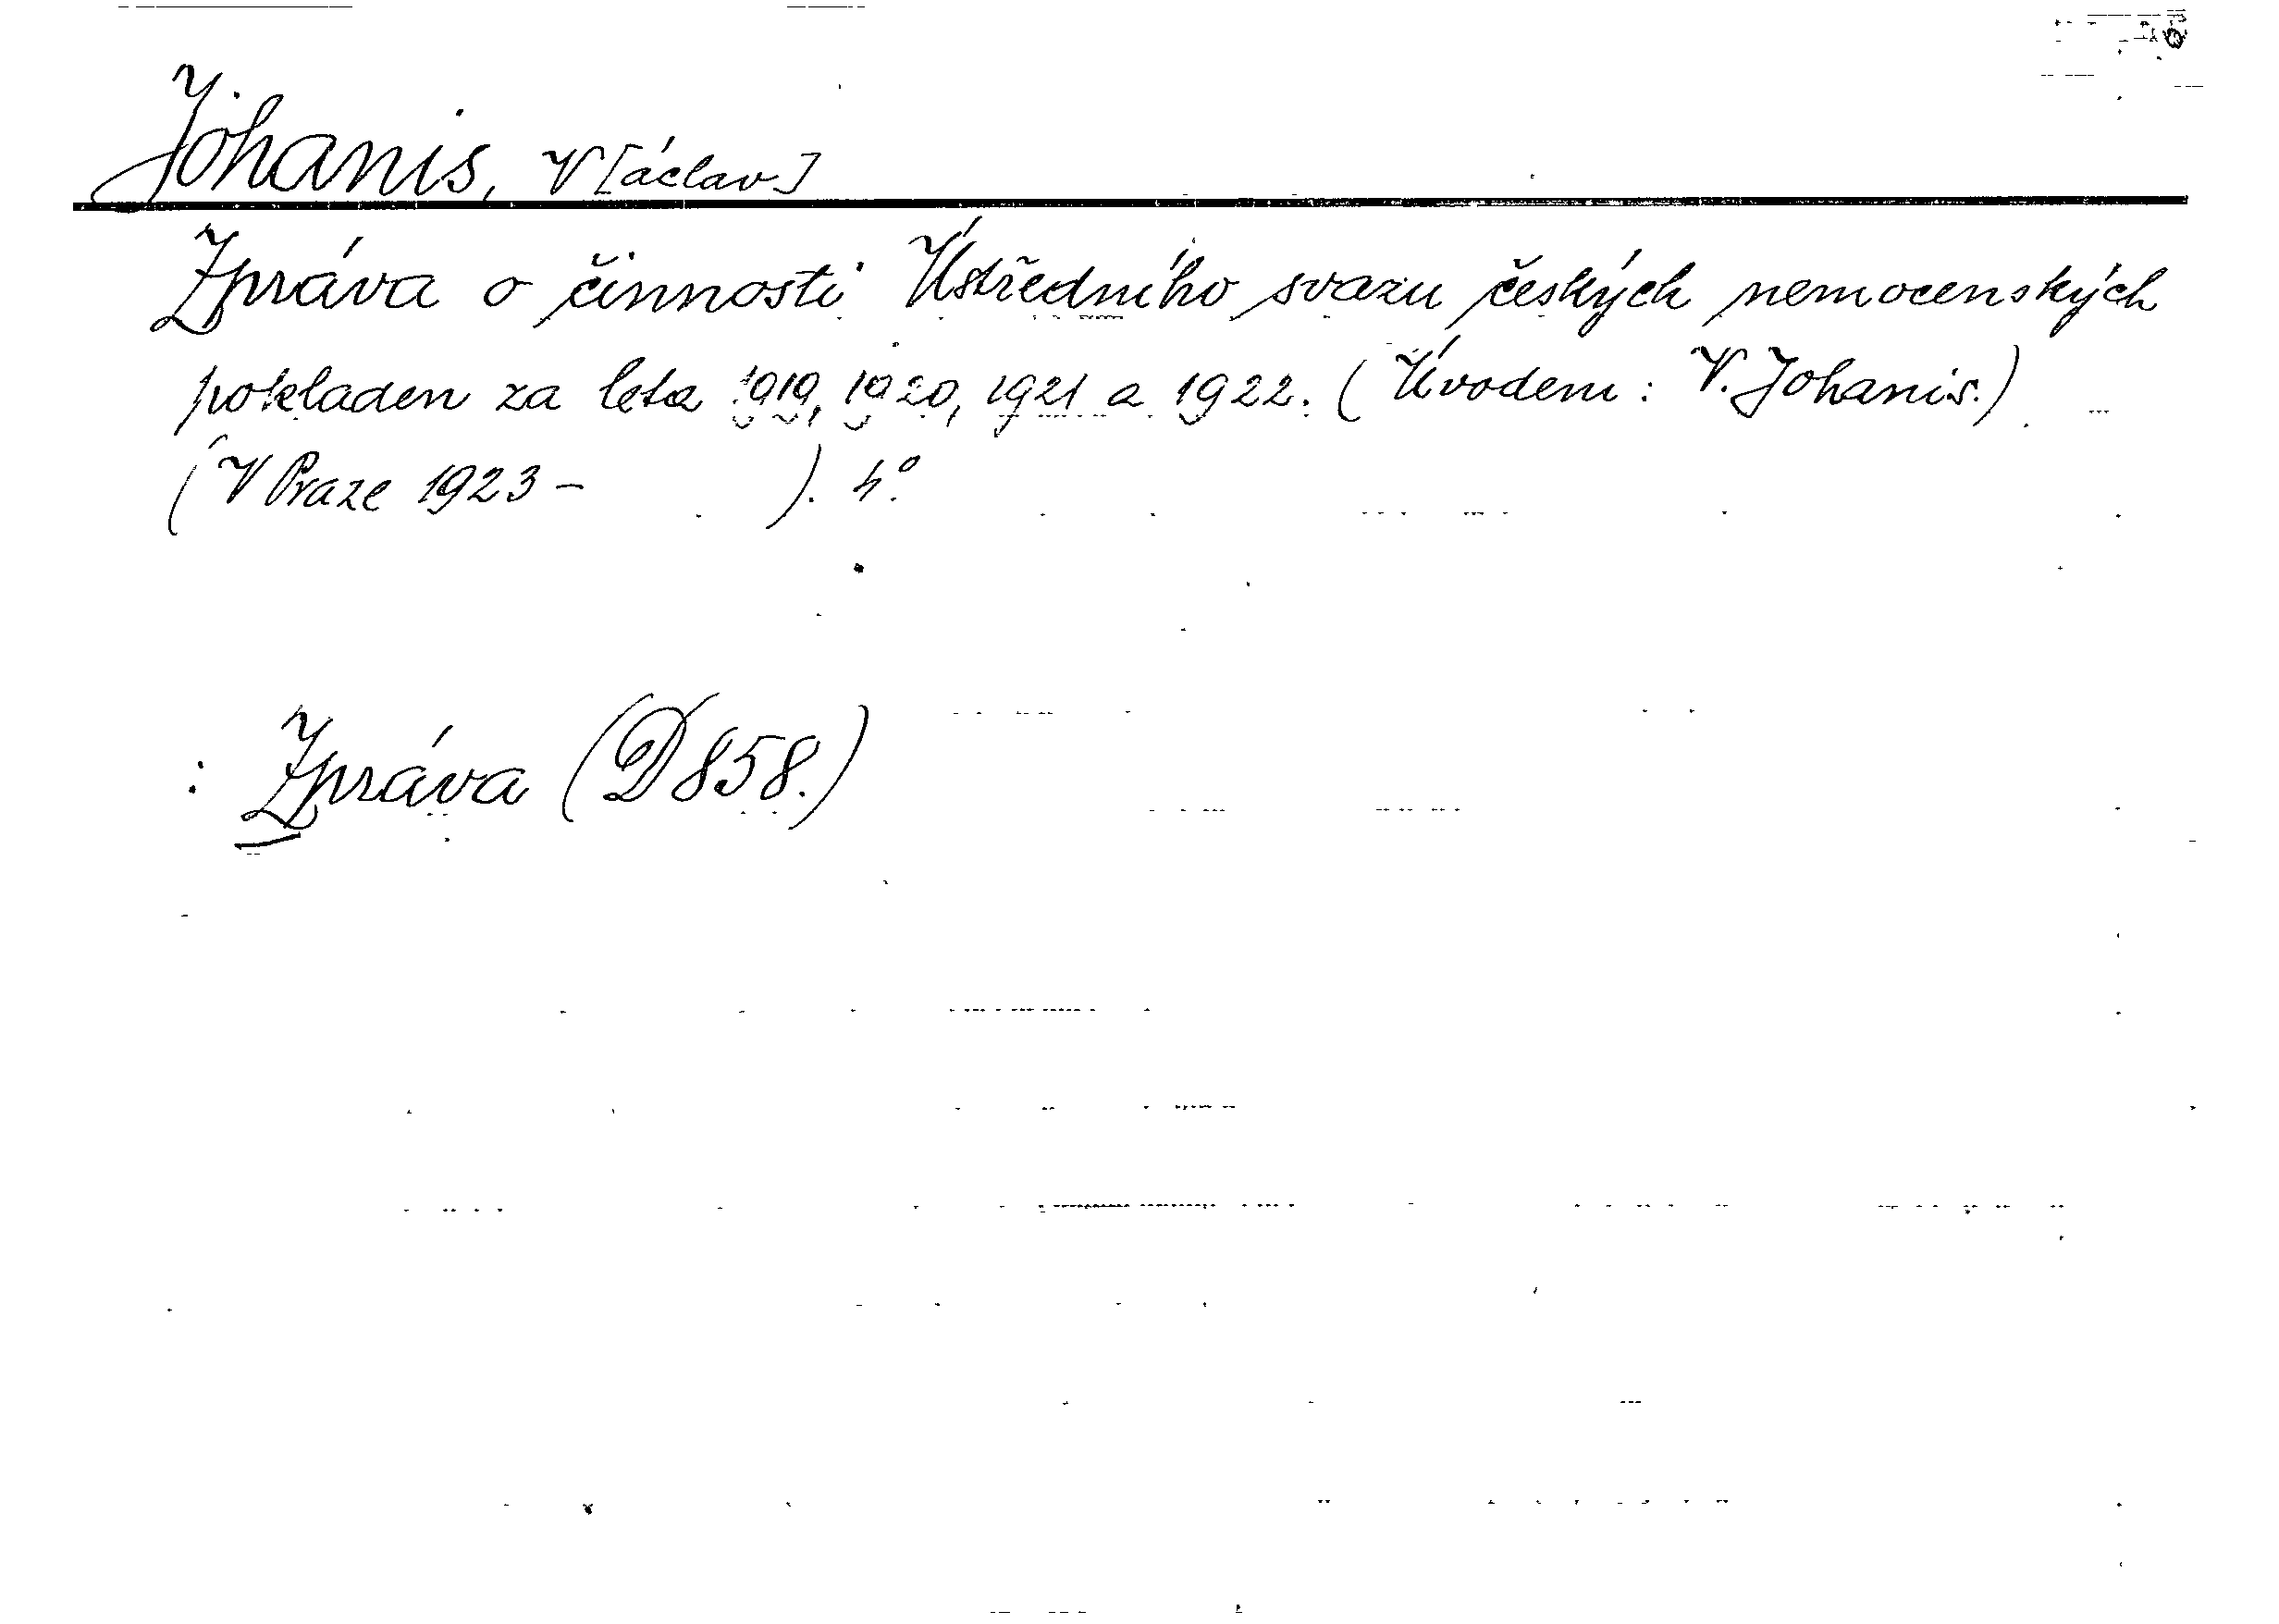 Johanis, V[áclav]
Zpráva o činnosti Ústředního svazu českých nemocenských
pokladen za leta 1919, 1920, 1921 a 1922. (Úvodem: V. Johanis.)
(V Praze 1923 – ). 4°.
: Zpráva (D 858.)